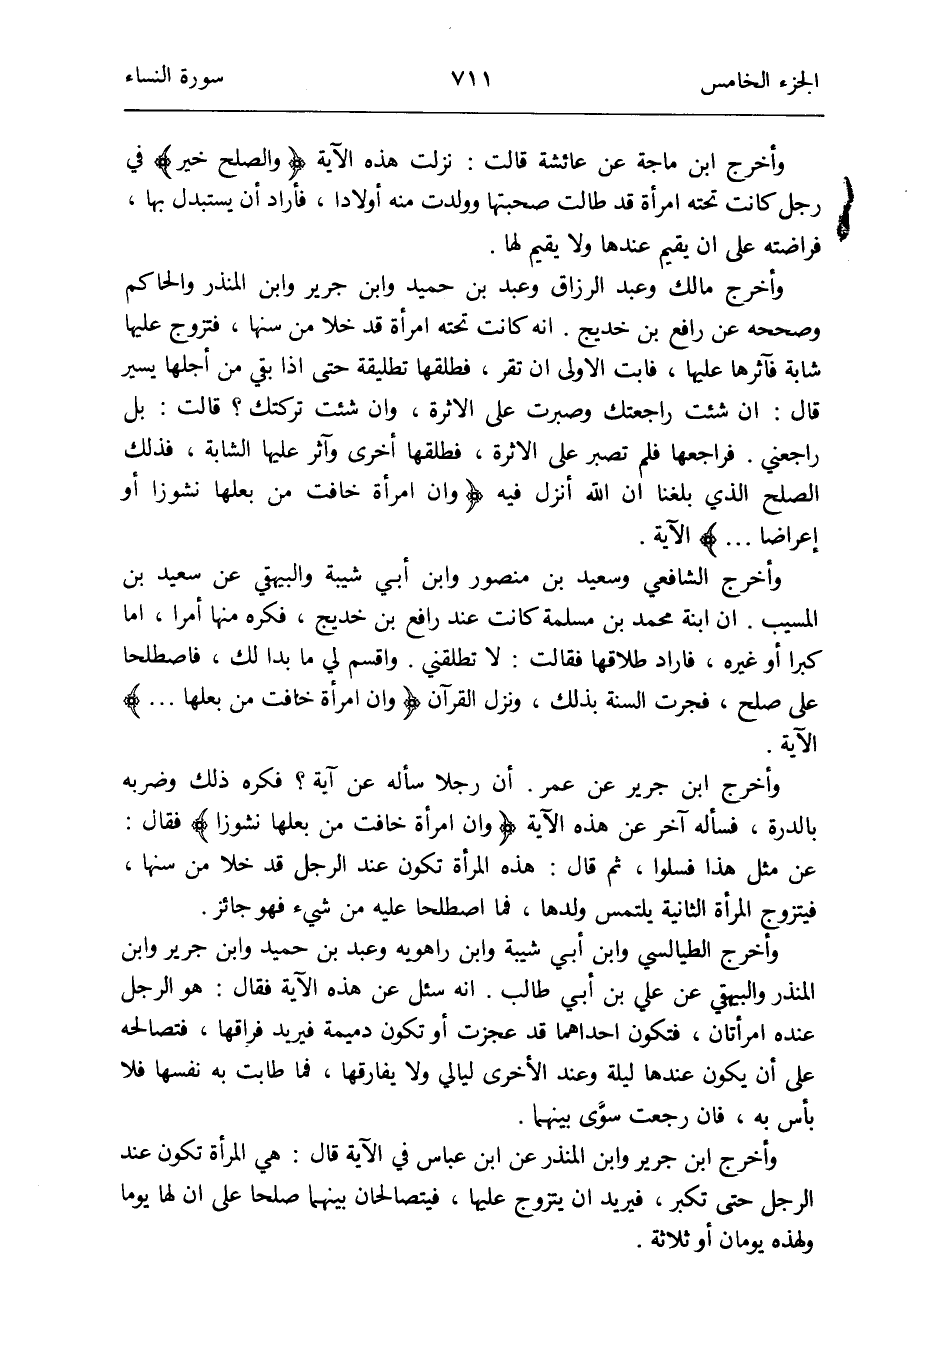 الجزء الخامس ٧١١ سورة النساء
وأخرج ابن ماجة عن عائشة قالت : نزلت هذه الآية ﴿ والصلح خير ﴾ في
رجل كانت تحته امرأة قد طالت صحبتها وولدت منه أولادا ، فأراد أن يستبدل بها ،
فراضته على ان يقيم عندها ولا يقيم لها .
وأخرج مالك وعبد الرزاق وعبد بن حميد وابن جرير وابن المنذر والحاكم
وصححه عن رافع بن خديج . انه كانت تحته امرأة قد خلا من سنها ، فتزوج عليها
شابة فآثرها عليها ، فابت الاولى ان تقر ، فطلقها تطليقة حتى اذا بقي من أجلها يسير
قال : ان شئت راجعتك وصبرت على الاثرة ، وان شئت تركتك ؟ قالت : بل
راجعني . فراجعها فلم تصبر على الاثرة ، فطلقها أخرى وآثر عليها الشابة ، فذلك
الصلح الذي بلغنا ان الله أنزل فيه ﴿ وان امرأة خافت من بعلها نشوزا أو
إعراضا ... ﴾ الآية .
وأخرج الشافعي وسعيد بن منصور وابن أبي شيبة والبيهقي عن سعيد بن
المسيب . ان ابنة محمد بن مسلمة كانت عند رافع بن خديج ، فكره منها أمرا ، اما
كبرا أو غيره ، فاراد طلاقها فقالت : لا تطلقني . واقسم لي ما بدا لك ، فاصطلحا
على صلح ، فجرت السنة بذلك ، ونزل القرآن ﴿ وان امرأة خافت من بعلها ... ﴾
الآية .
وأخرج ابن جرير عن عمر . أن رجلا سأله عن آية ؟ فكره ذلك وضربه
بالدرة ، فسأله آخر عن هذه الآية ﴿ وان امرأة خافت من بعلها نشوزا ﴾ فقال :
عن مثل هذا فسلوا ، ثم قال : هذه المرأة تكون عند الرجل قد خلا من سنها ،
فيتزوج المرأة الثانية يلتمس ولدها ، فما اصطلحا عليه من شيء فهو جائز .
وأخرج الطيالسي وابن أبي شيبة وابن راهويه وعبد بن حميد وابن جرير وابن
المنذر والبيهقي عن علي بن أبي طالب . انه سئل عن هذه الآية فقال : هو الرجل
عنده امرأتان ، فتكون احداهما قد عجزت أو تكون دميمة فيريد فراقها ، فتصالحه
على أن يكون عندها ليلة وعند الأخرى ليالي ولا يفارقها ، فما طابت به نفسها فلا
بأس به ، فان رجعت سوَّى بينهما .
وأخرج ابن جرير وابن المنذر عن ابن عباس في الآية قال : هي المرأة تكون عند
الرجل حتى تكبر ، فيريد ان يتزوج عليها ، فيتصالحان بينهما صلحا على ان لها يوما
ولهذه يومان أو ثلاثة .